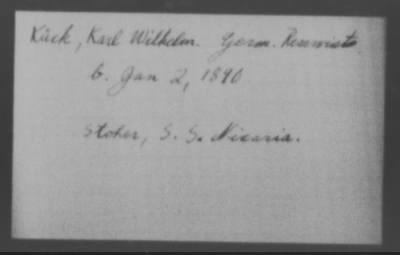 Kück, Karl Wilhelm. Germ. Reservist.
b. Jan 2, 1890
Stoker, S. S. Nicaria.